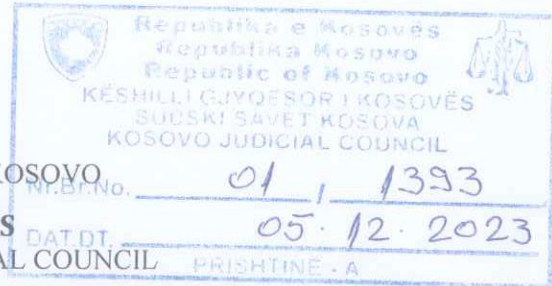 Republika e Kosovës
Republika Kosovo
Republic of Kosovo
KËSHILLI GJYQËSOR I KOSOVËS
SUDSKI SAVET KOSOVA
KOSOVO JUDICIAL COUNCIL
KOSOVO
Nr.Br.No. 01 / 1393
S
DAT.DT. 05. 12. 2023
AL COUNCIL
PRISHTINË - A